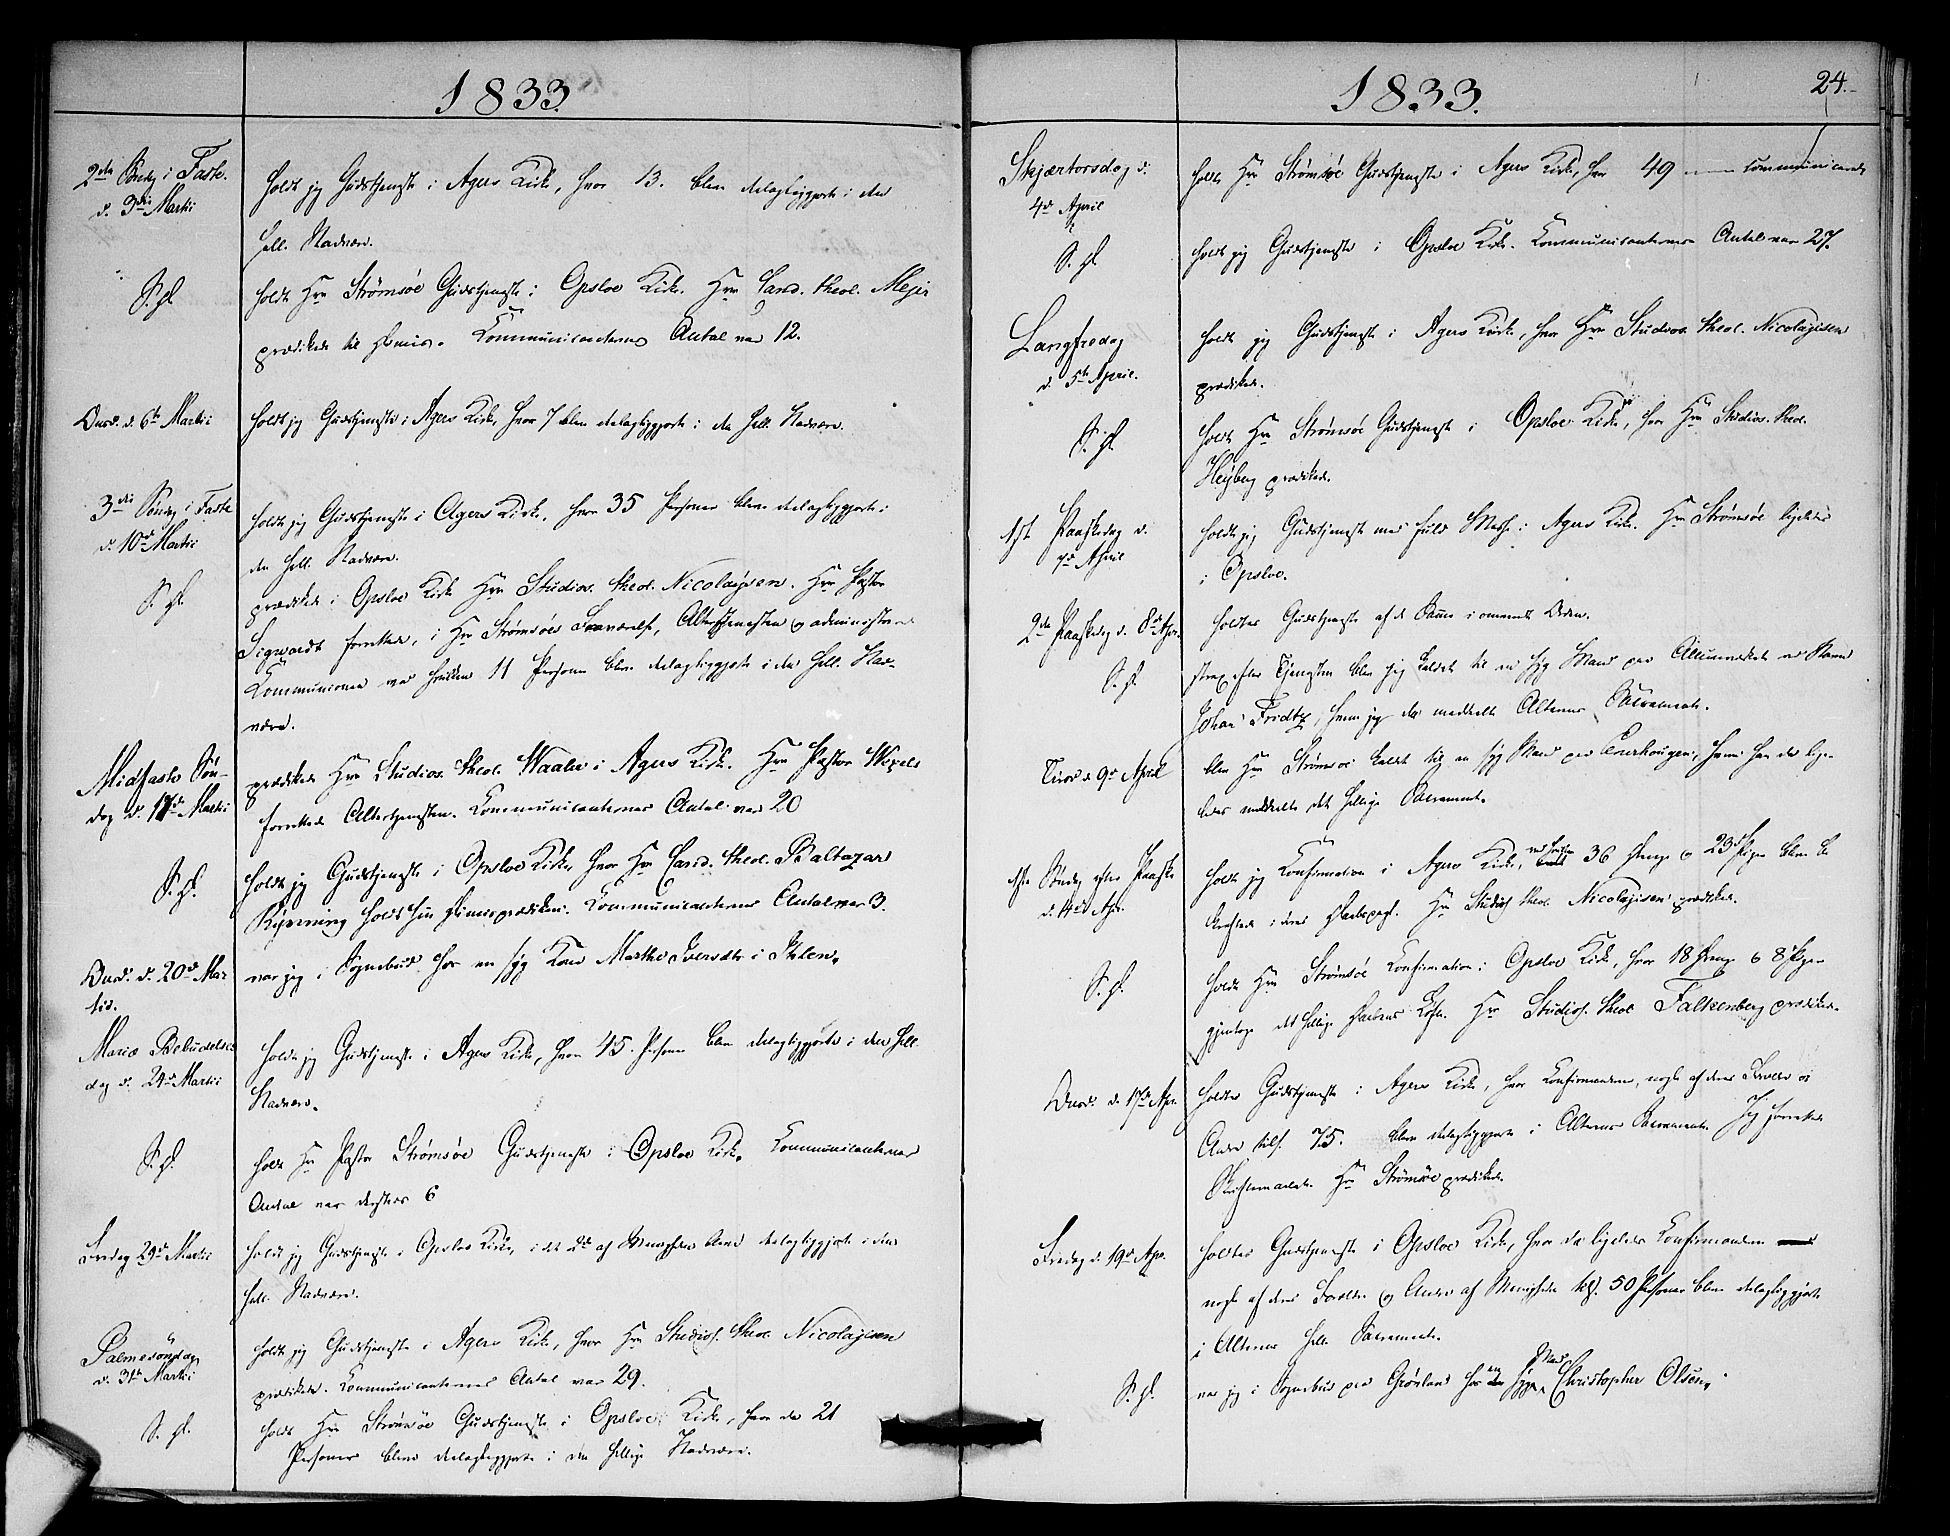 1833.
2den Søndag i Faste. d. 3die Martii
holdt jeg Gudstjeneste i Agers Kirke, hvor 13. bleve delagtiggjorte i den
hell. Nadvere.
S. D.
holdt Hr. Strømsøe Gudstjeneste i Opsloe Kirke. Hr. Cand. theol. Mejer
prædikede til Dimis. Communicanternes Antal var 12.
Onsd. d. 6te Martii
holdt jeg Gudstjeneste i Agers Kirke, hvor 7 bleve delagtiggjorte i den hell. Nadvere.
3die Søndag i Faste
d. 10de Martii
holdt jeg Gudstjeneste i Agers Kirke, hvor 35 Personer bleve delagtiggjorte i
den hell. Nadvere.
S. D.
prædikede i Opsloe Kirke Hr. Studios. theol. Nicolaysen. Hr. Pastor
Sigwardt forrettede, i Hr. Strømsøes Fraværelse, Altertjenesten og administrerede
Communionen ved hvilken 11 Personer bleve delagtiggjorte i den hell. Nad-
vere.
Midfaste Søn-
dag d. 17de Martii
prædikede Hr. Studios. theol. Waaler i Agers Kirke. Hr. Pastor Wexels
forrettede Altertjenesten. Communicanternes Antal var 20
S. D.
holdt jeg Gudstjeneste i Opsloe Kirke, hvor Hr. Cand. theol. Baltazar
holdt sin Dimisprædiken. Communicanternes Antal var 3.
Onsd. d. 20de Mar
tii.
var jeg i Sognebud hos en syg Kone Marthe Iversdtr i
Mariæ Bebudelses
dag d. 24de Martii
holdt jeg Gudstjeneste i Agers Kirke, hvor 45. Personer bleve delagtiggjorte i den hell.
Nadvere.
S. D.
holdt Hr. Pastor Strømsøe Gudstjeneste i Opsloe Kirke. Communicanternes
Antal var 6
Fredag 29de Martii
holdt jeg Gudstjeneste i Opsloe Kirke, af Menigheden bleve delagtiggjorte i den
hell. Nadvere.
Palmesöndag
d. 31te Martii
holdt jeg Gudstjeneste i Agers Kirke, hvor Hr. Studios. theol. Nicolaysen
prædikede. Communicanternes Antal var 29.
S. D.
holdt Hr. Strømsöe Gudstjeneste i Opsloe Kirke, hvor der 21
Personer bleve delagtiggjorte i den hellige Nadvere.
1833.
24.
Skjærtorsdag d.
4de April
holdt Hr. Strømsöe Gudstjeneste i Agers Kirke, hvor 49 communicerede
S. D.
holdt jeg Gudstjeneste i Opsloe Kirke. Communicanternes Antal var 27.
Langfredag
d. 5te April.
holdt jeg Gudstjeneste i Agers Kirke, hvor Hr. Studios. theol. Nicolaysen
prædikede.
S. D.
holdt Hr. Strømsöe Gudstjeneste i Opsloe Kirke, hvor Hr. Studios. theol.
Heyberg prædikede.
1ste Paaskedag d.
7de April
holdt jeg Gudstjeneste med fuld Messe i Agers Kirke. Hr. Strømsöe ligeledes
i Opsloe.
2den Paaskedag d. 8de Apr.
holdtes Gudstjeneste af de Samme i omvendt Orden.
S. D.
strax efter Tjenesten blev jeg kaldet til en syg Mand paa ved Navn
Johan Fridtz, hvem jeg da meddelte Alterens Sacramente.
Tirsd. d. 9de April
blev Hr. Strømsöe kaldet til en syg Mand paa Enerhougen, hvem han da lige-
ledes meddelte det hellige Sacramente.
1ste Söndag efter Paaske
d. 14de Apr.
holdt jeg Confirmation i Agers Kirke, ved hvilken 36 Drenge og 23 Piger bleve be
kræftede i deres Daabspagt. Hr. Studios. theol. Nicolaysen prædikede.
S. D.
holdt Hr. Strømsöe Confirmation i Opsloe Kirke, hvor 18 Drenge og 8 Piger
gjentoge det hellige Daabens Löfte. Hr. Studios. theol. Falkenberg prædikede.
Onsd. d. 17de Apr.
holdtes Gudstjeneste i Agers Kirke, hvor Confirmanderne, nogle af deres Forældre og
Andre tils. 75. bleve delagtiggjorte i Alterens Sacramente. Jeg forrettede
Skriftemaalet. Hr. Strømsöe prædikede.
Fredag d. 19de Apr.
holdtes Gudstjeneste i Opsloe Kirke, hvor da ligeledes Confirmanderne
nogle af deres Forældre og Andre af Menigheden tils. 50 Personer bleve delagtiggjorte
i Alterens hell. Sacramente.
S. D.
var jeg i Sognebud paa Grönland hos en syg Mand Christopher Olsen.